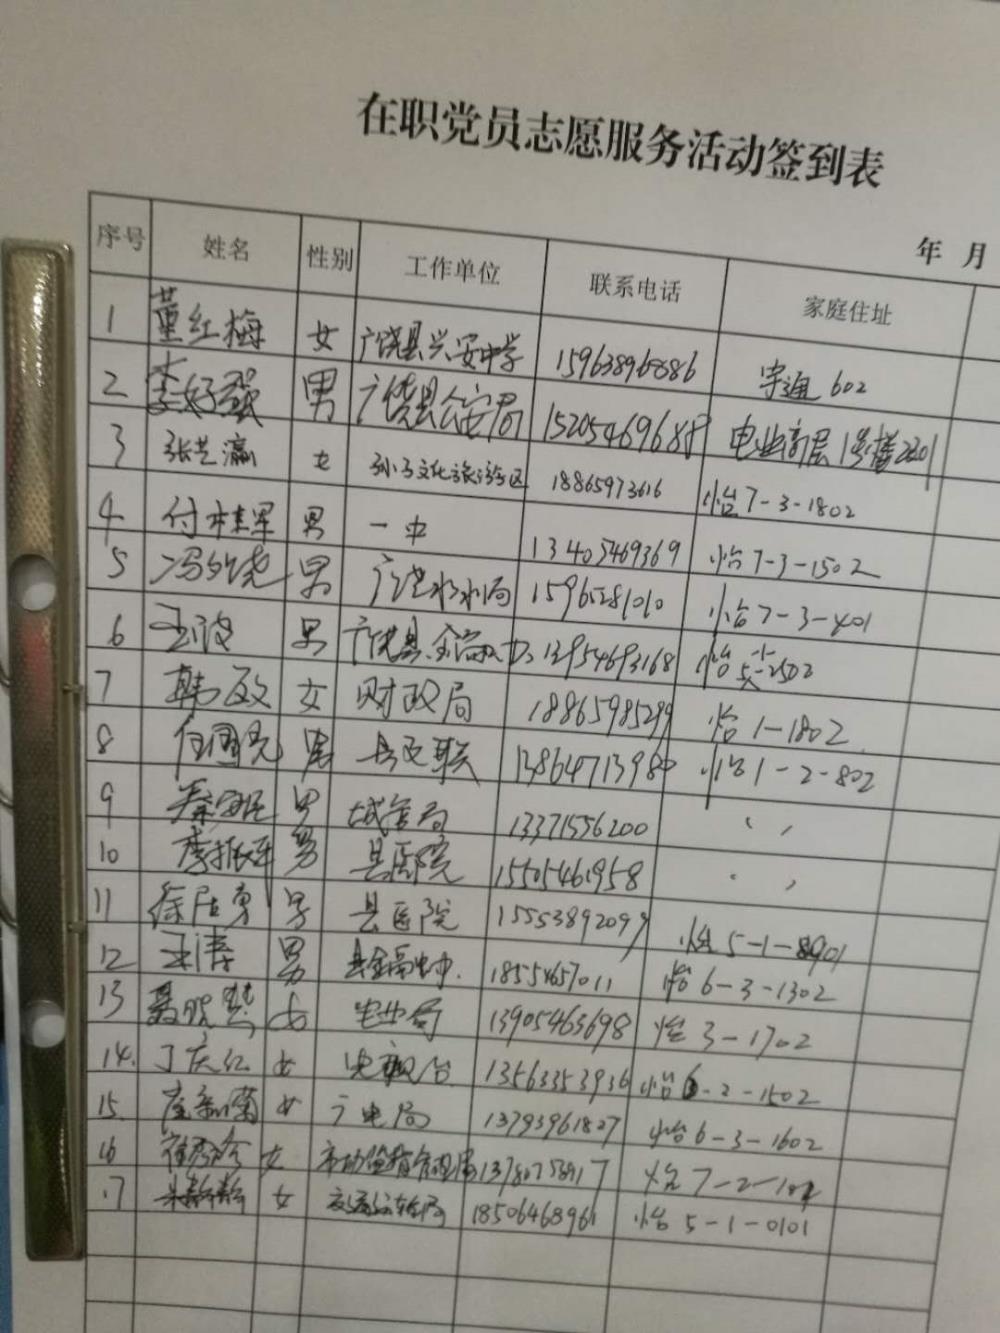 在职党员志愿服务活动签到表
年 月
序号 姓名 性别 工作单位 联系电话 家庭住址
1 董红梅 女 广饶县兴安中学 15963896886 宇通 602
2 李好强 男 广饶县公安局 152054696 电业高层1号楼2201
3 张芝瀛 女 孙子文化旅游区 18865973616 怡7-3-1802
4 付桂军 男 一中 13405469369 怡7-3-1502
5 冯 饶 男 广饶水利局 15965281010 怡7-3-401
6 王波 男 广饶县 13954693168 怡 2502
7 韩敏 女 财政局 18865985299 怡1-1802
8 任国亮 男 县 联 13864713980 怡1-2-802
9 秦 男 城管局 13371556200 〃
10 李振军 男 县医院 15505461958 〃
11 徐 勇 男 县医院 15553892099 怡5-1-
12 王涛 男 县金融 18554657011 怡6-3-1302
13 聂晓燕 女 电业局 13905463698 怡3-1702
14. 丁庆红 女 电视台 13563353936 怡6-2-1502
15. 崔新菊 女 广电局 13793961827 怡6-3-1602
16 崔 女 市场监督管理局 137807 怡7-2-
17 女 交通运输局 18506468961 怡5-1-0101